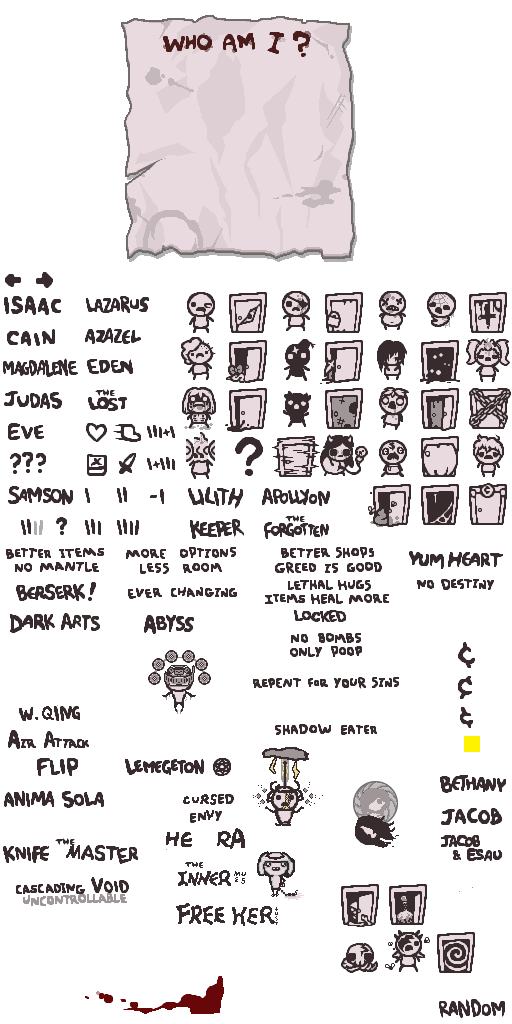 WHO AM I?
ISAAC LAZARUS
CAIN AZAZEL
MAGDALENE EDEN
JUDAS THE LOST
EVE
???
?
SAMSON LILITH APOLLYON
? KEEPER THE FORGOTTEN
BETTER ITEMS
NO MANTLE
MORE OPTIONS
LESS ROOM
BETTER SHOPS
GREED IS GOOD
YUM HEART
BERSERK!
EVER CHANGING
LETHAL HUGS
ITEMS HEAL MORE
NO DESTINY
DARK ARTS
ABYSS
LOCKED
NO BOMBS
ONLY POOP
REPENT FOR YOUR SINS
¢
¢
¢
W. QING
SHADOW EATER
AIR ATTACK
FLIP
LEMEGETON
BETHANY
ANIMA SOLA
CURSED
ENVY
JACOB
HE RA
JACOB
& ESAU
KNIFE THE MASTER
THE
INNER
CASCADING VOID
UNCONTROLLABLE
FREE HER
RANDOM